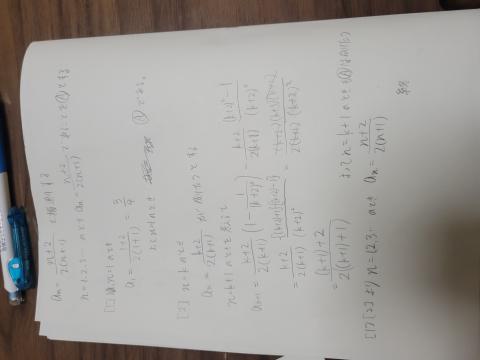 aₙ = n+2/2(n+1) と推測する
n=1,2,3… のとき aₙ = n+2/2(n+1) であることを Ⓐ とする
[1] n=1 のとき
a₁ = 1+2/2(1+1) = 3/4
よって n=1 のとき Ⓐ である。
[2] n=k のとき
aₖ = k+2/2(k+1) が成り立つとする
n=k+1 のときを考えて
aₖ₊₁ = k+2/2(k+1) (1 - 1/(k+2)²) = k+2/2(k+1) (k+2)²-1/(k+2)²
= k+2/2(k+1) {(k+2)+1}{(k+2)-1}/(k+2)² = (k+2)(k+1)(k+3)/2(k+1)(k+2)²
= (k+1)+2/2{(k+1)+1}
よって n=k+1 のときも Ⓐ は成り立つ
[1][2] より n=1,2,3… のとき aₙ = n+2/2(n+1)
終